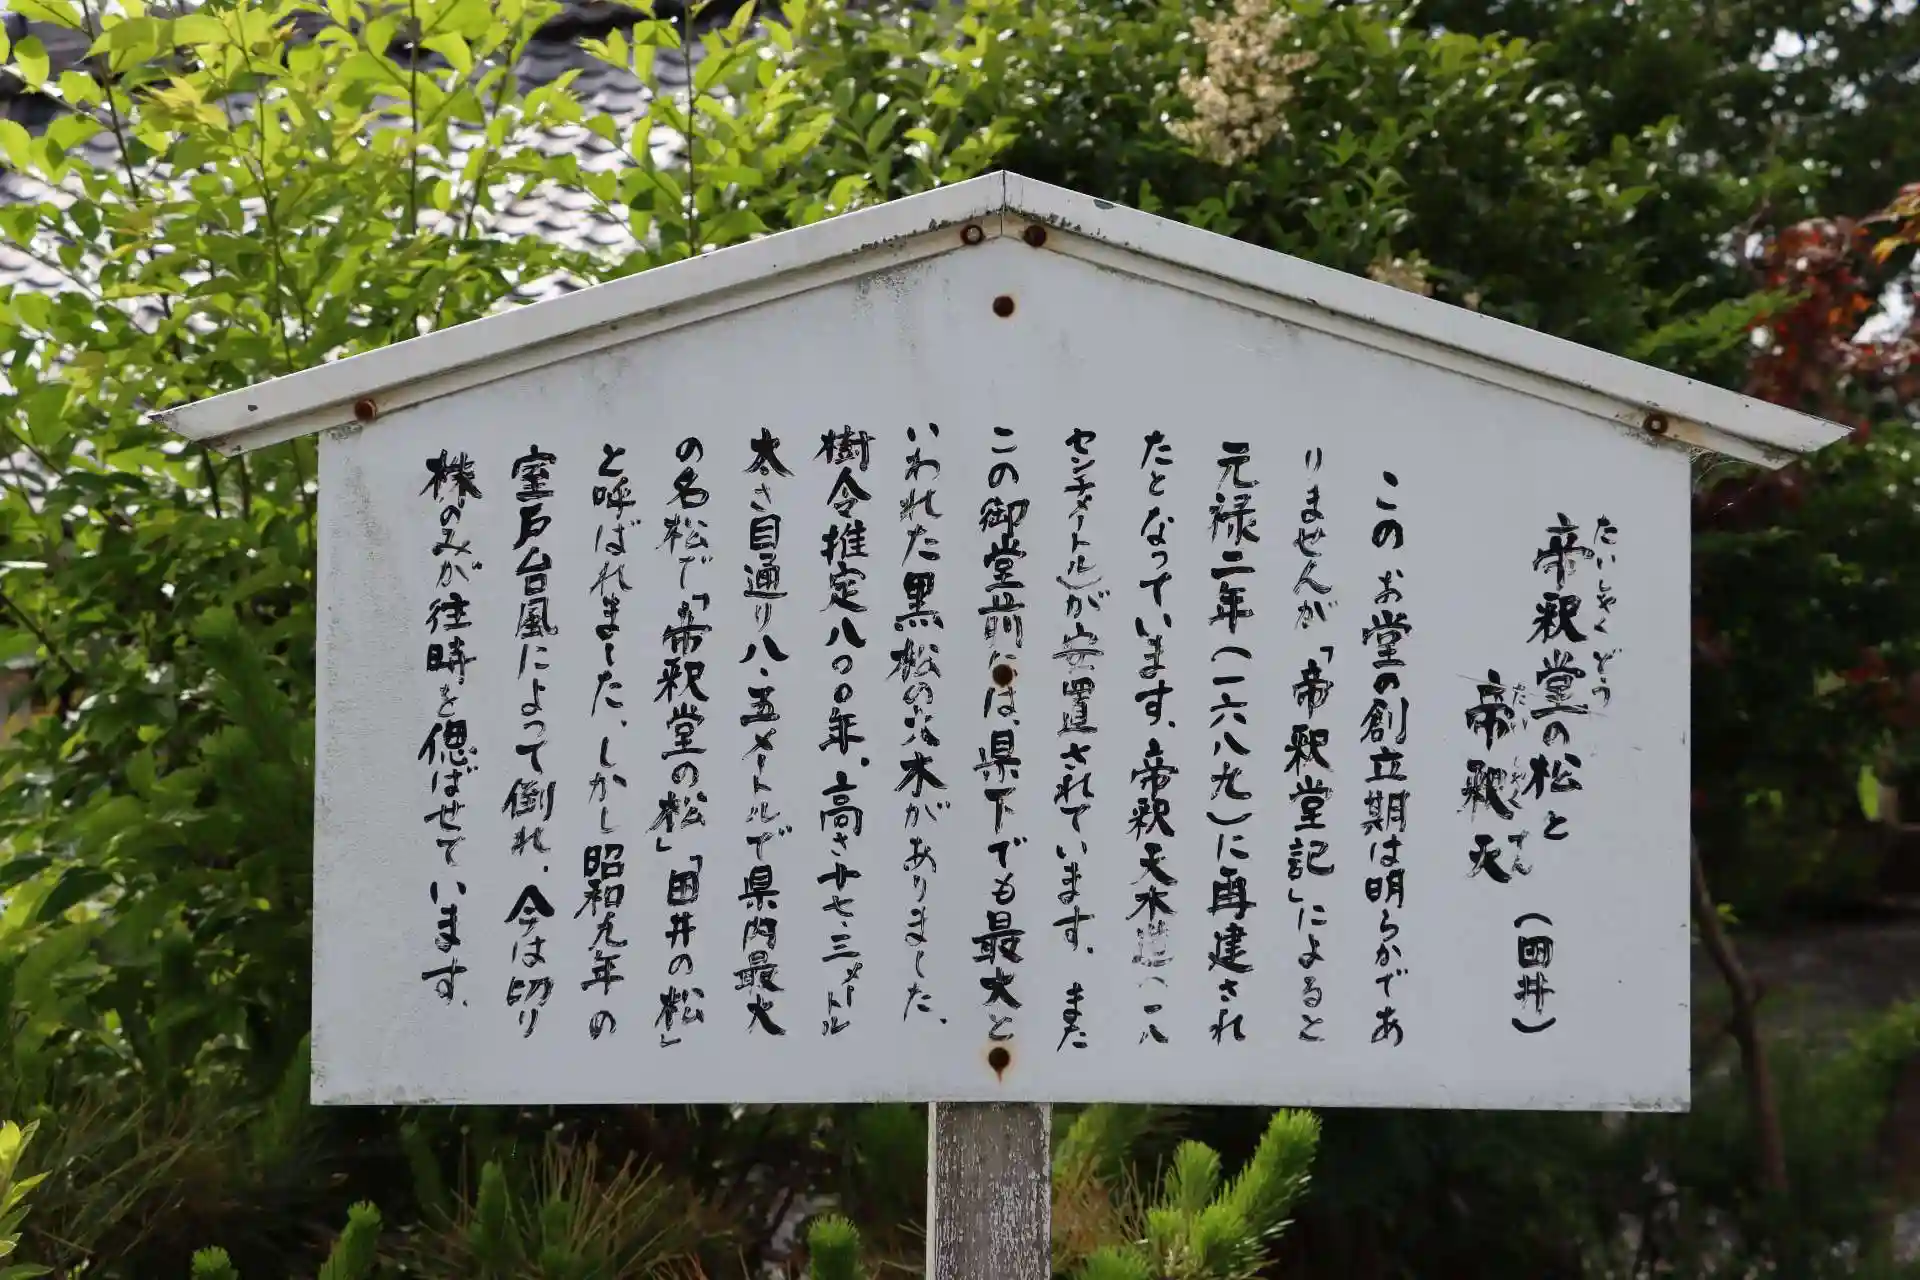 たいしゃくどう
帝釈堂の松と
たいしゃくてん
帝釈天
(国井)
このお堂の創立期は明らかであ
りませんが「帝釈堂記」によると
元禄二年(一六八九)に再建され
たとなっています、帝釈天木造(一八
センチメートル)が安置されています、また
この御堂前には、県下でも最大と
いわれた黒松の大木がありました、
樹令推定八〇〇年、高さ廿七、三メートル
太さ目通り八、五メートルで県内最大
の名松で「帝釈堂の松」「国井の松」
と呼ばれました、しかし昭和九年の
室戸台風によって倒れ、今は切り
株のみが往時を偲ばせています、